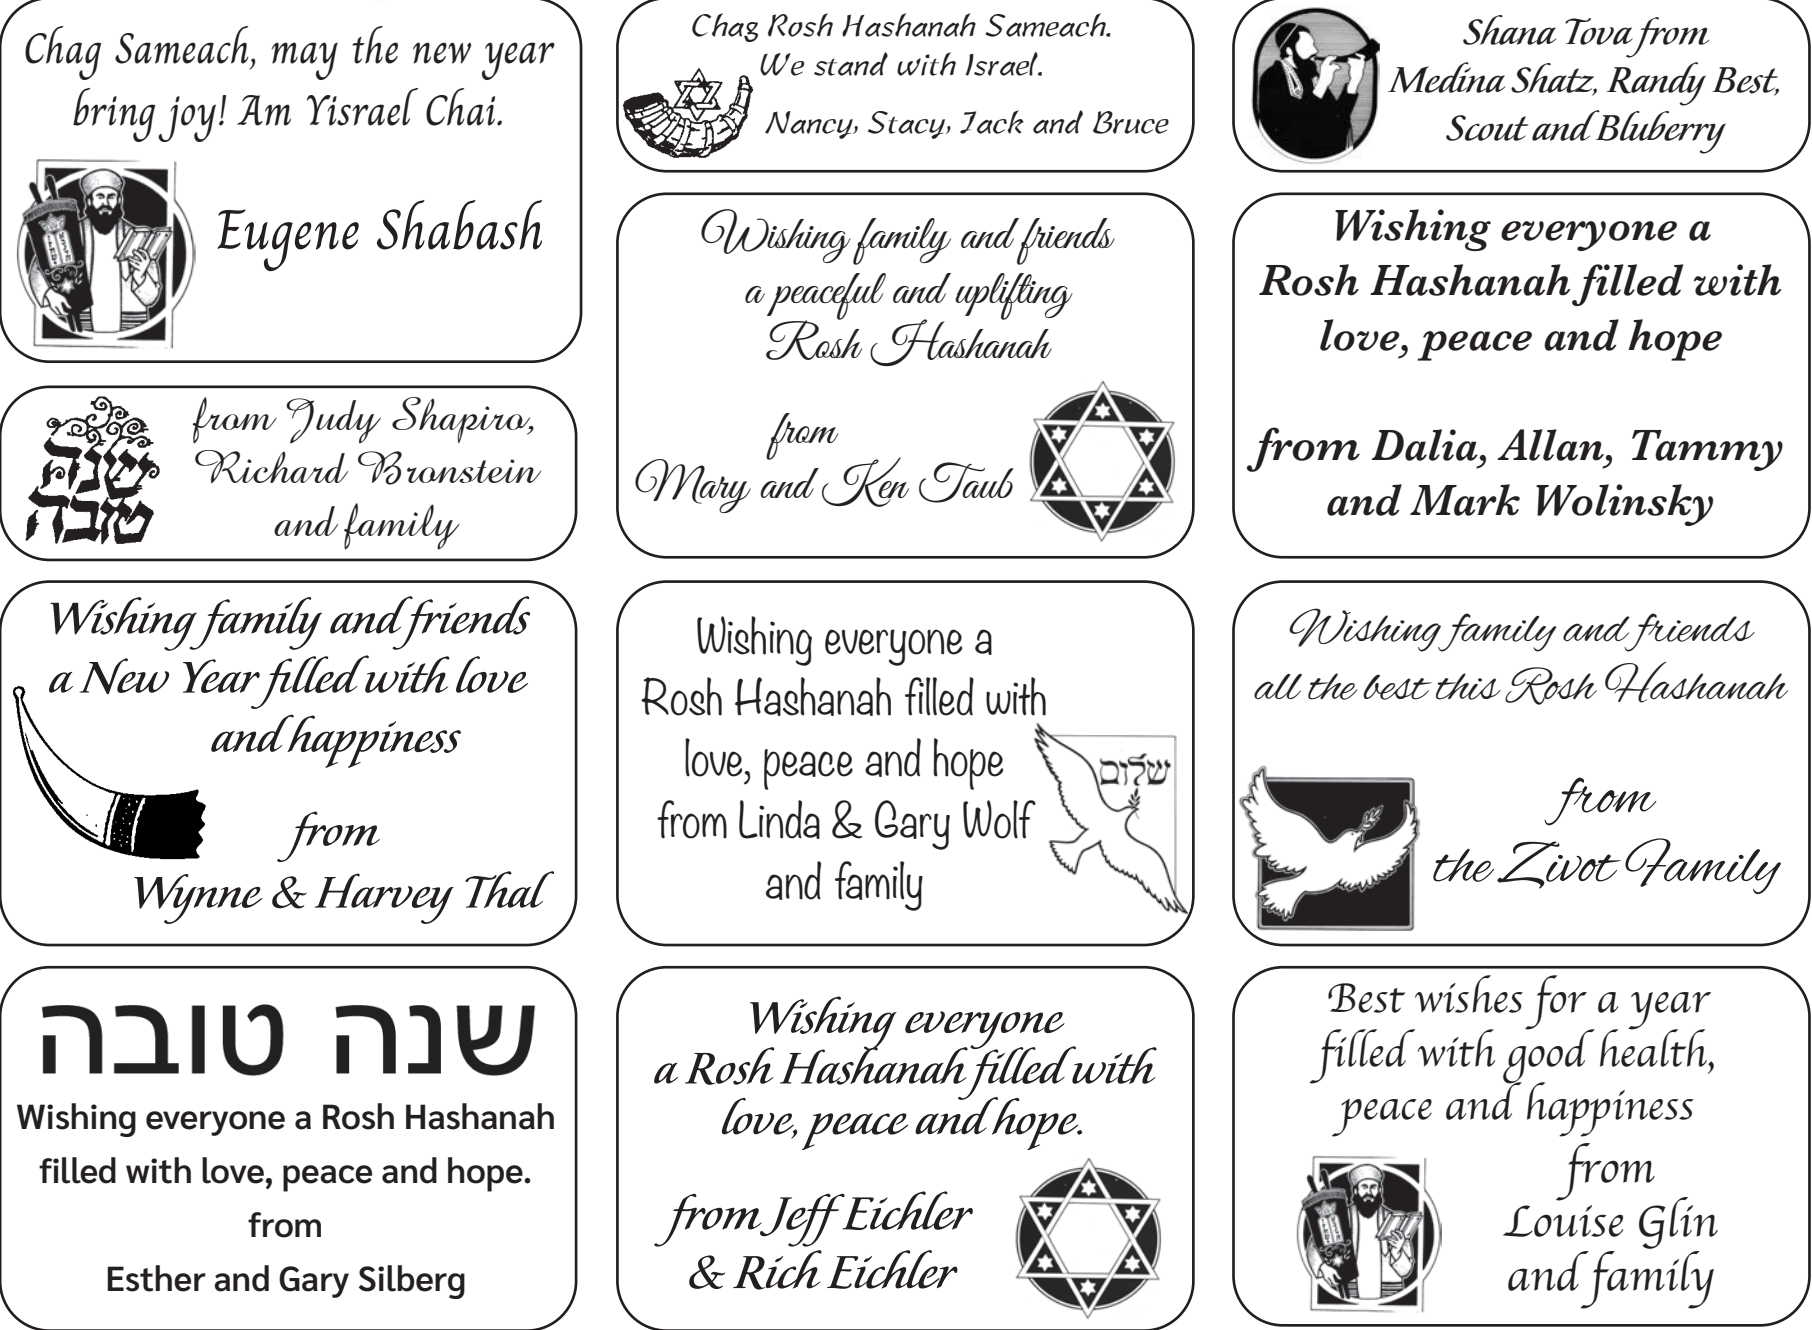 Chag Sameach, may the new year
bring joy! Am Yisrael Chai.
Eugene Shabash
שנה
טובה
from Judy Shapiro,
Richard Bronstein
and family
Wishing family and friends
a New Year filled with love
and happiness
from
Wynne & Harvey Thal
שנה טובה
Wishing everyone a Rosh Hashanah
filled with love, peace and hope.
from
Esther and Gary Silberg
Chag Rosh Hashanah Sameach.
We stand with Israel.
Nancy, Stacy, Jack and Bruce
Wishing family and friends
a peaceful and uplifting
Rosh Hashanah
from
Mary and Ken Taub
Wishing everyone a
Rosh Hashanah filled with
love, peace and hope
from Linda & Gary Wolf
and family
שלום
Wishing everyone
a Rosh Hashanah filled with
love, peace and hope.
from Jeff Eichler
& Rich Eichler
Shana Tova from
Medina Shatz, Randy Best,
Scout and Bluberry
Wishing everyone a
Rosh Hashanah filled with
love, peace and hope
from Dalia, Allan, Tammy
and Mark Wolinsky
Wishing family and friends
all the best this Rosh Hashanah
from
the Zivot Family
Best wishes for a year
filled with good health,
peace and happiness
from
Louise Glin
and family